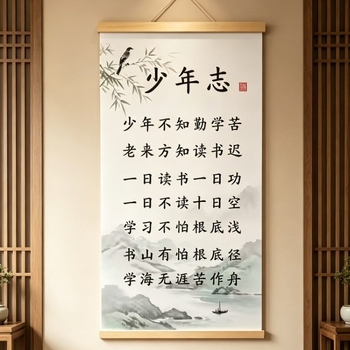 少年志
少年不知勤学苦
老来方知读书迟
一日读书一日功
一日不读十日空
学习不怕根底浅
书山有怕根底径
学海无涯苦作舟